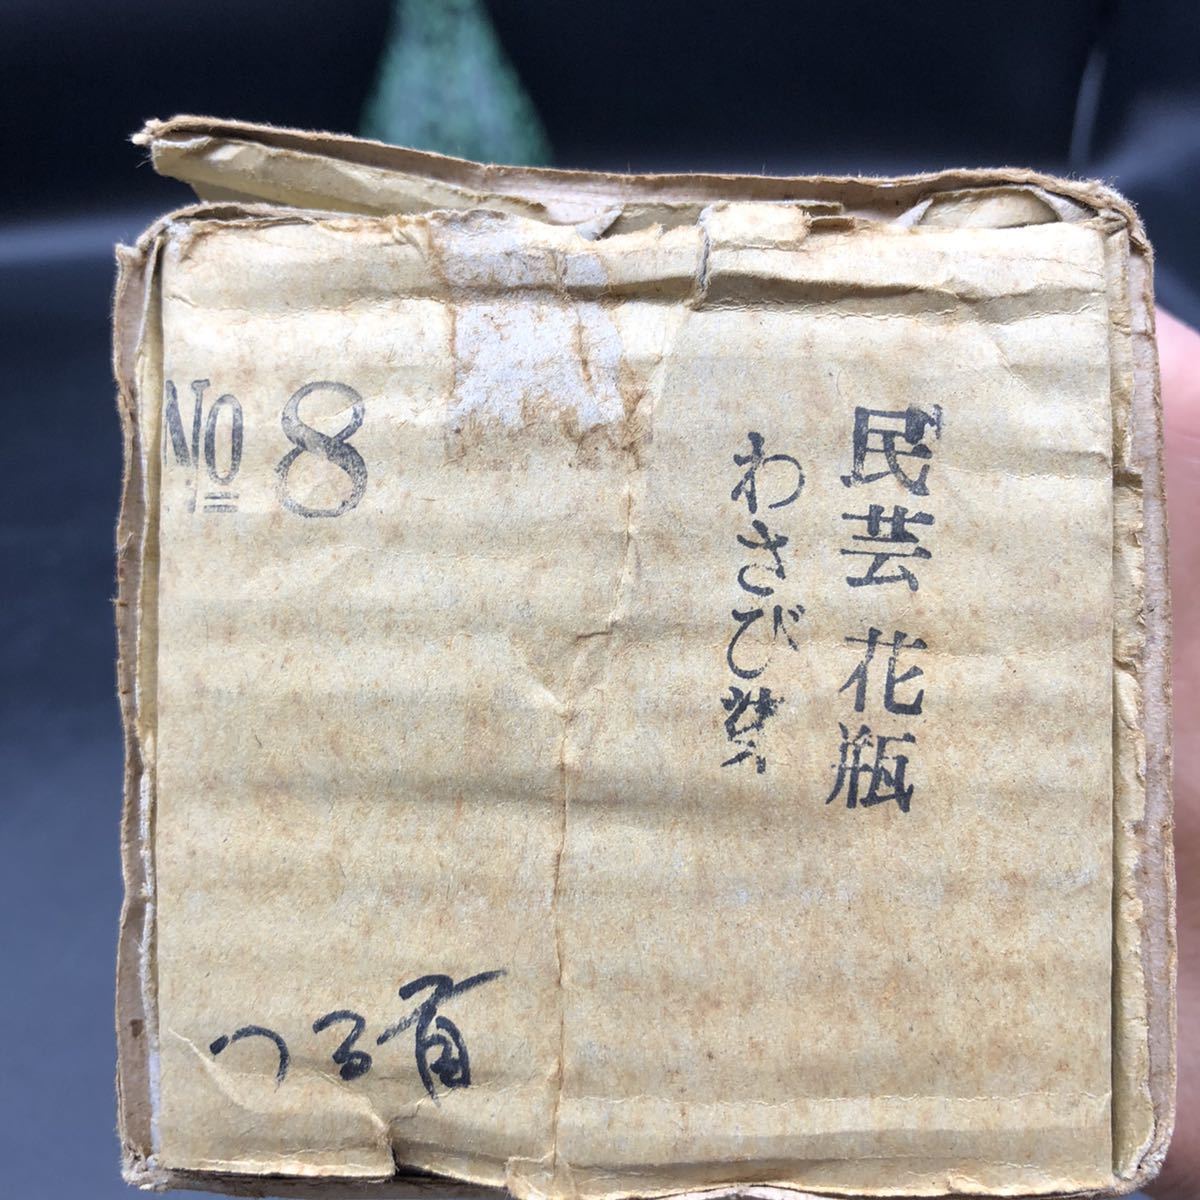 民芸 花瓶
わさび
No 8
つる首